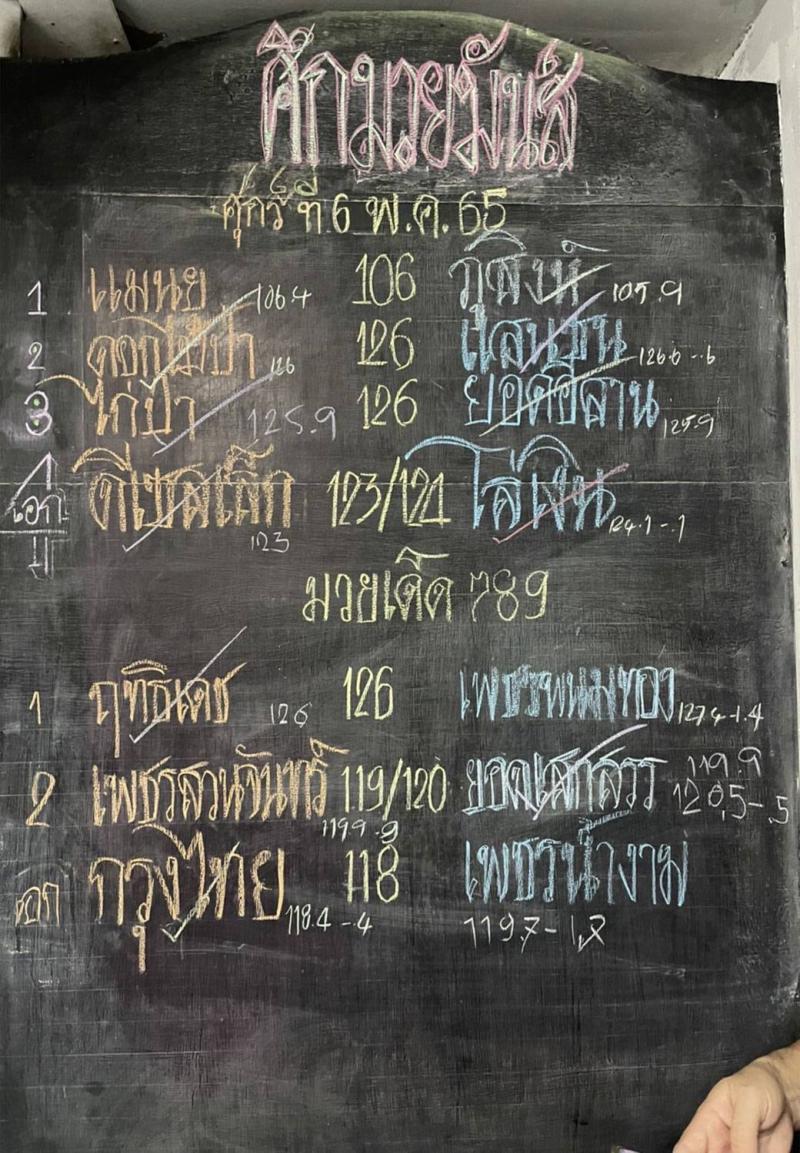 ศึกมวยมันส์
ศุกร์ ที่ 6 พ.ค. 65
1 แมนยู 106.4 106 ภูสิงห์ 105.9
2 ดอกไม้ป่า 126 126 แสนชน 126.6 -.6
3 ไก่ป่า 125.9 126 ยอดอีสาน 125.9
เอก ดีเซลเล็ก 123 123/121 ไล่เงิน 124.1 -.1
มวยเด็ด 789
1 ฤทธิเดช 126 126 เพชรพนมทอง 127.4-1.4
2 เพชรสวนจันทร์ 119.9 119/120 ยอดเสกสรร 119.9
120.5-.5
เอก กรุงไทย 118.4 -.4 118 เพชรน้ำงาม
119.7-1.7